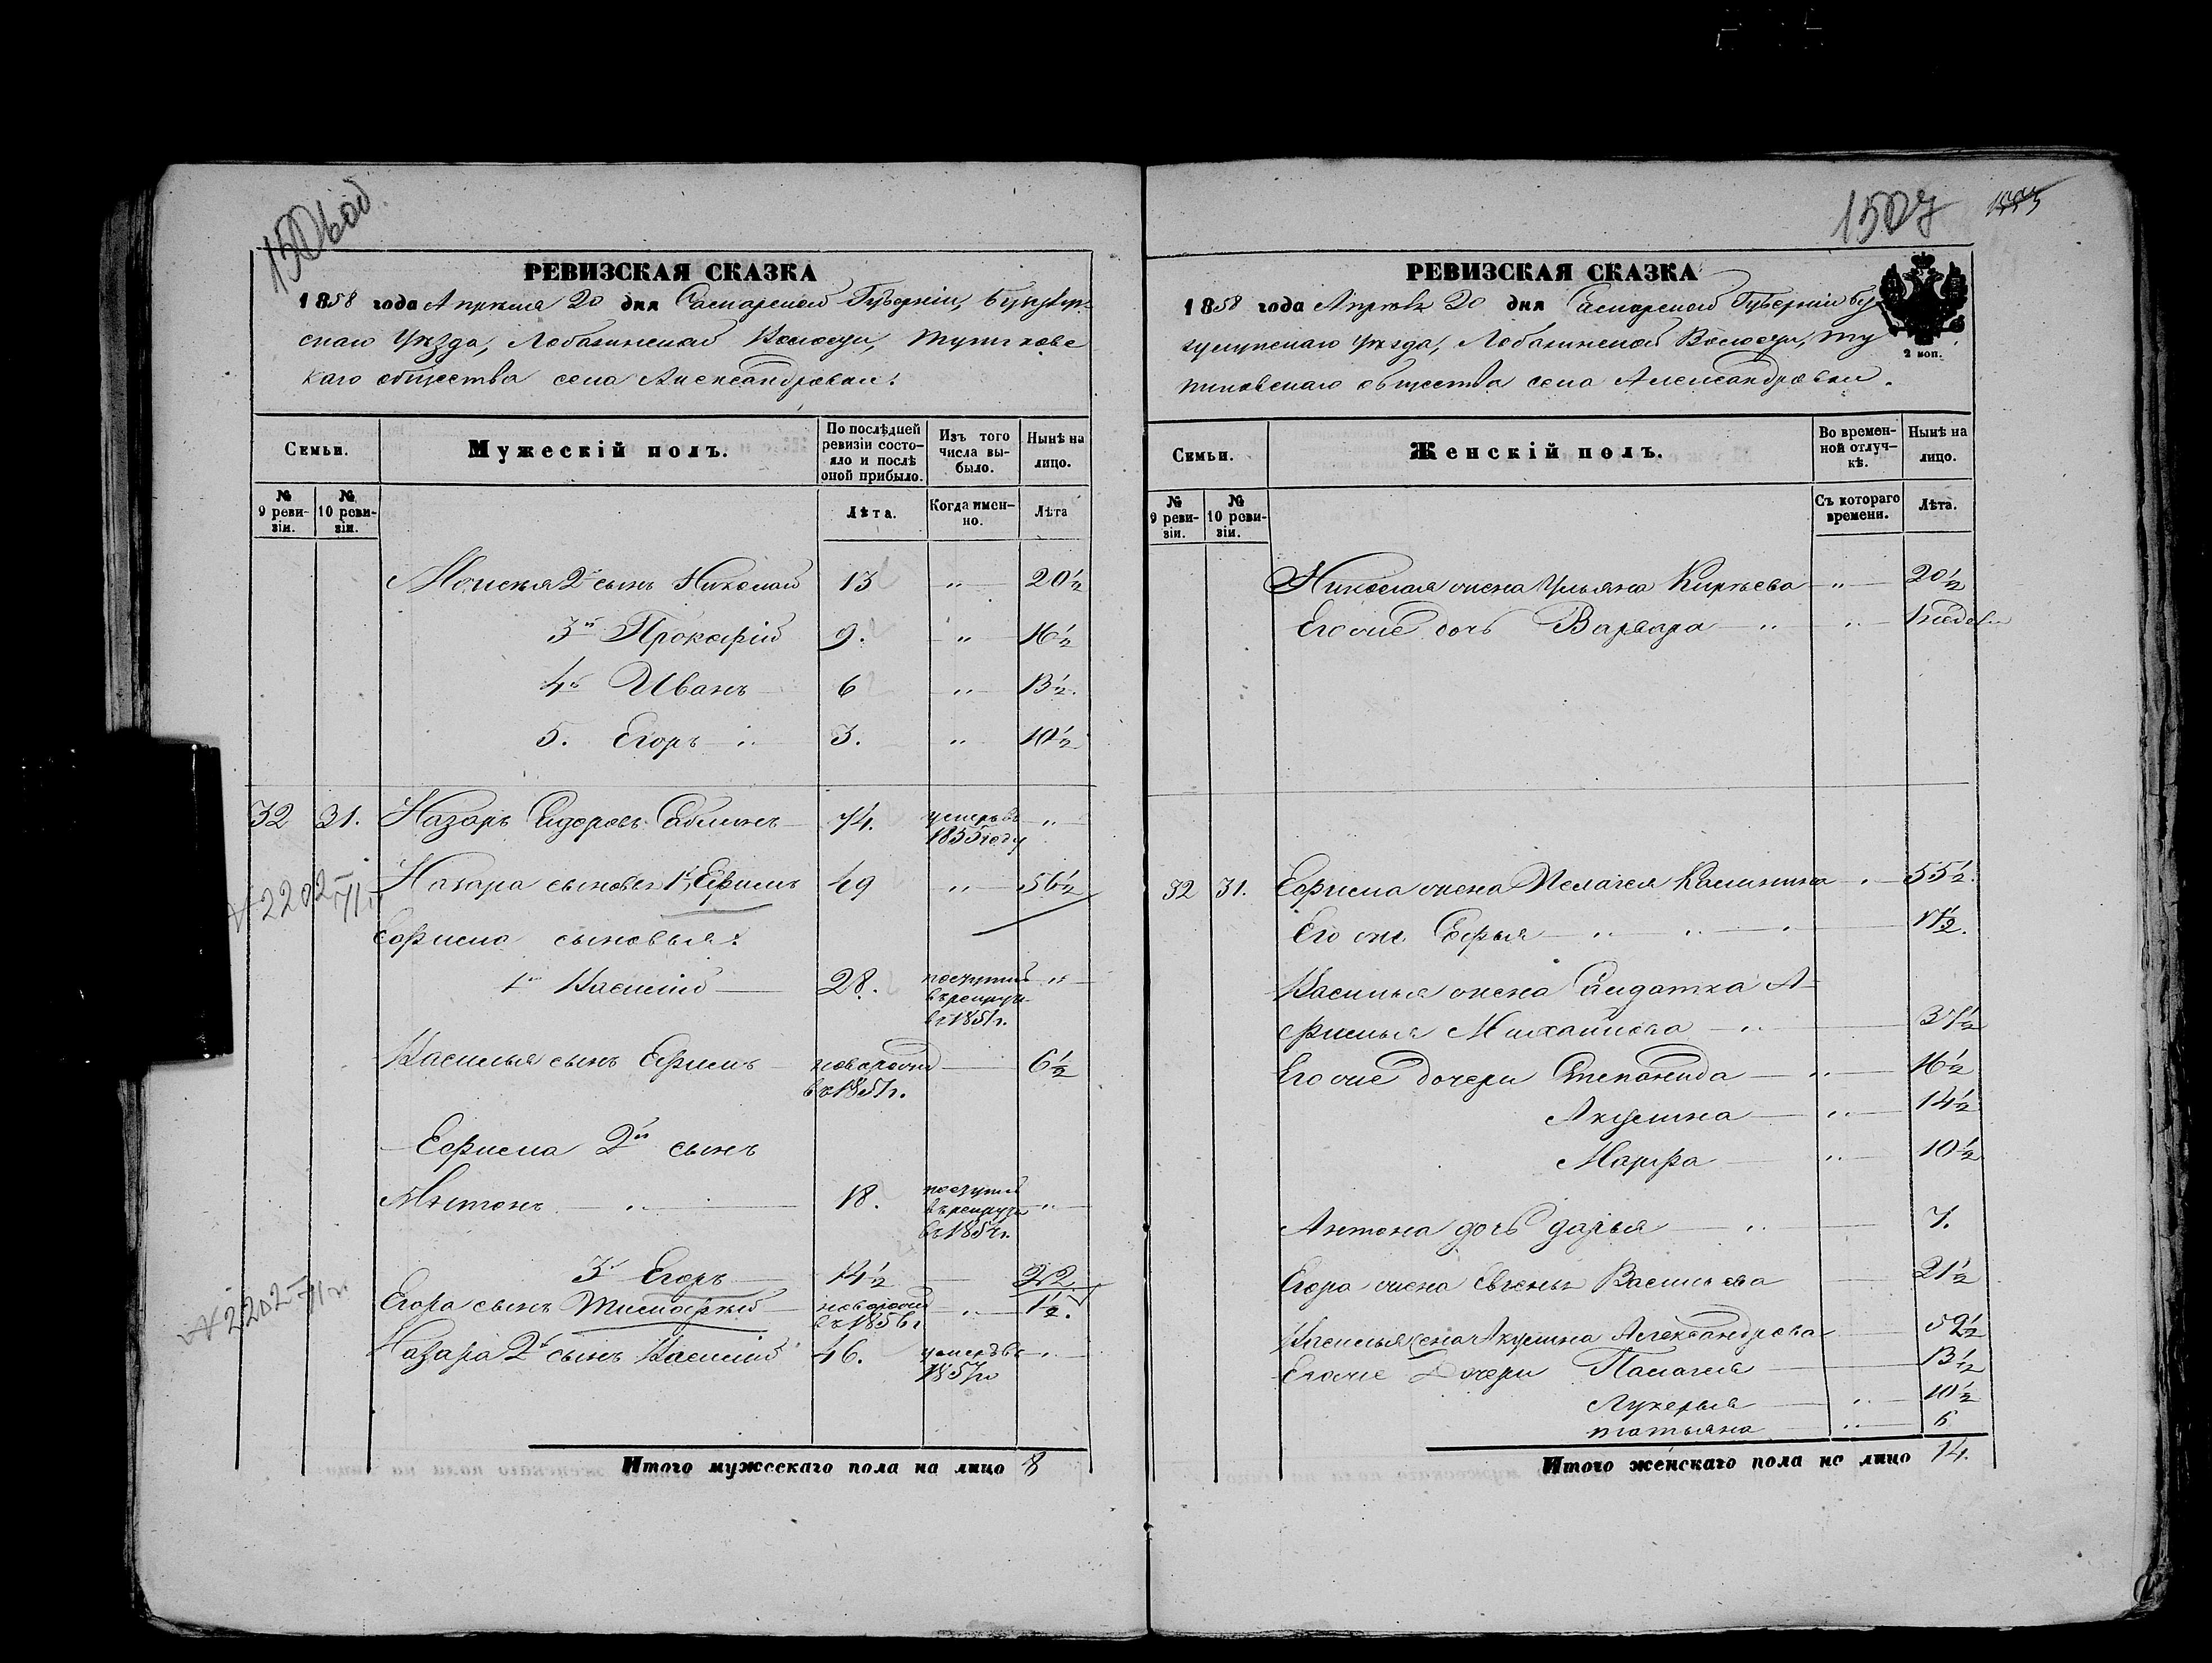 1506об
РЕВИЗСКАЯ СКАЗКА
1858 года Апреля 20 дня Самарской Губерніи, Бузулук-
скаго Уѣзда, Лобазинской Волости,
каго общества села Александровки.
Семьи.
Мужескій полъ.
По послѣдней ревизіи состо-яло и послѣ оной прибыло.
Изъ того числа вы-было.
Нынѣ на лицо.
№ 9 реви-зіи.
№ 10 реви-зіи.
Лѣта.
Когда имен-но.
Лѣта
Моисея 2й сынъ Николай 13 " 20½
3й Прокофій 9. " 16½
4й Иванъ 6 " 13½.
5. Егоръ 3. " 10½
32 31. Назаръ Сидоровъ 74. умеръ въ 1855 году "
Назара сыновья 1й Ефимъ 49 " 56½
№ 2202
Ефима сыновья:
1й Василій 28. поступил в рекруты в 185 г. "
Василья сынъ Ефимъ новорожд в 1851 г. 6½
Ефима 2й сынъ
Антонъ 18. поступил в рекруты въ 185 г. "
3й Егоръ 14½ 22
№ 2202
Егора сынъ Тимофей новорожд въ 1856 г " 1½.
Назара 2й сынъ Василій 46. умеръ въ 1857 го "
Итого мужескаго пола на лицо 8
1507
РЕВИЗСКАЯ СКАЗКА
1858 года Апреля 20 дня Самарской Губерніи Бу
зулукскаго Уѣзда, Лобазинской Волости,
общества села Александровки.
2 коп.
Семьи.
Женскій полъ.
Во времен-ной отлуч-кѣ.
Нынѣ на лицо.
№ 9 реви-зіи.
№ 10 реви-зіи.
Съ котораго времени.
Лѣта.
Николая жена Ульяна Кирѣева " 20½
Его же дочь Варвара " " 1 недел
32 31. Ефима жена Пелагея Калинина 55½.
Его же Софья
Василья жена Салдатка А-
фимья Михайлова 37½
Его же дочери Степанида " 16½
Акулина " 14½
Марфа " 10½
Антона дочь Дарья 7.
Егора жена Евгенья Васильева 21½
Василья жена Акулина Александрова
Его же Дочери Палагея 13½
Лукерья " 10½
Татьяна " 6
Итого женскаго пола на лицо 14.